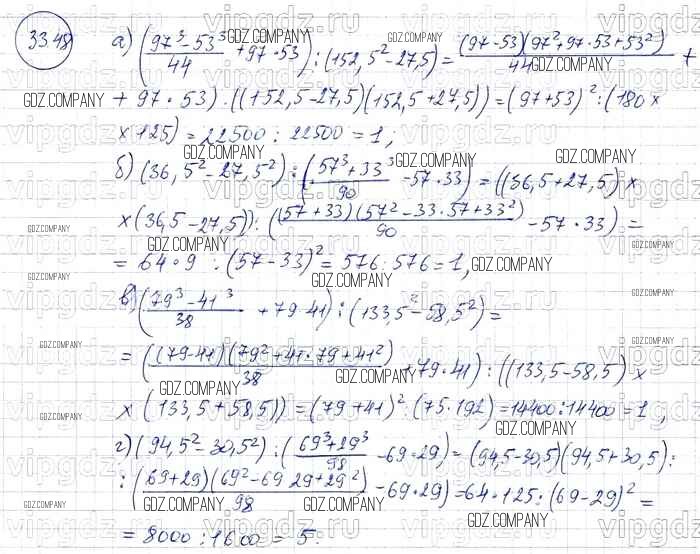 33.48
а) ((97³ - 53³)/44 + 97·53) : (152,5² - 27,5) = ((97-53)(97²+97·53+53²)/44 +
+ 97·53) : ((152,5-27,5)(152,5+27,5)) = (97+53)² : (180 ×
× 125) = 22500 : 22500 = 1;
б) (36,5² - 27,5²) : ((57³+33³)/90 - 57·33) = ((36,5+27,5) ×
× (36,5-27,5)) : ((57+33)(57²-33·57+33²)/90 - 57·33) =
= 64·9 : (57-33)² = 576 : 576 = 1,
в) ((79³-41³)/38 + 79·41) : (133,5² - 58,5²) =
= ((79-41)(79²+41·79+41²)/38 79·41) : ((133,5-58,5) ×
× (133,5+58,5)) = (79+41)² : (75·192) = 14400 : 14400 = 1;
г) (94,5² - 30,5²) : ((69³+29³)/98 - 69·29) = (94,5-30,5)(94,5+30,5) :
: ((69+29)(69²-69 29+29²)/98 - 69·29) = 64·125 : (69-29)² =
= 8000 : 1600 = 5.
GDZ.COMPANY
vipgdz.ru